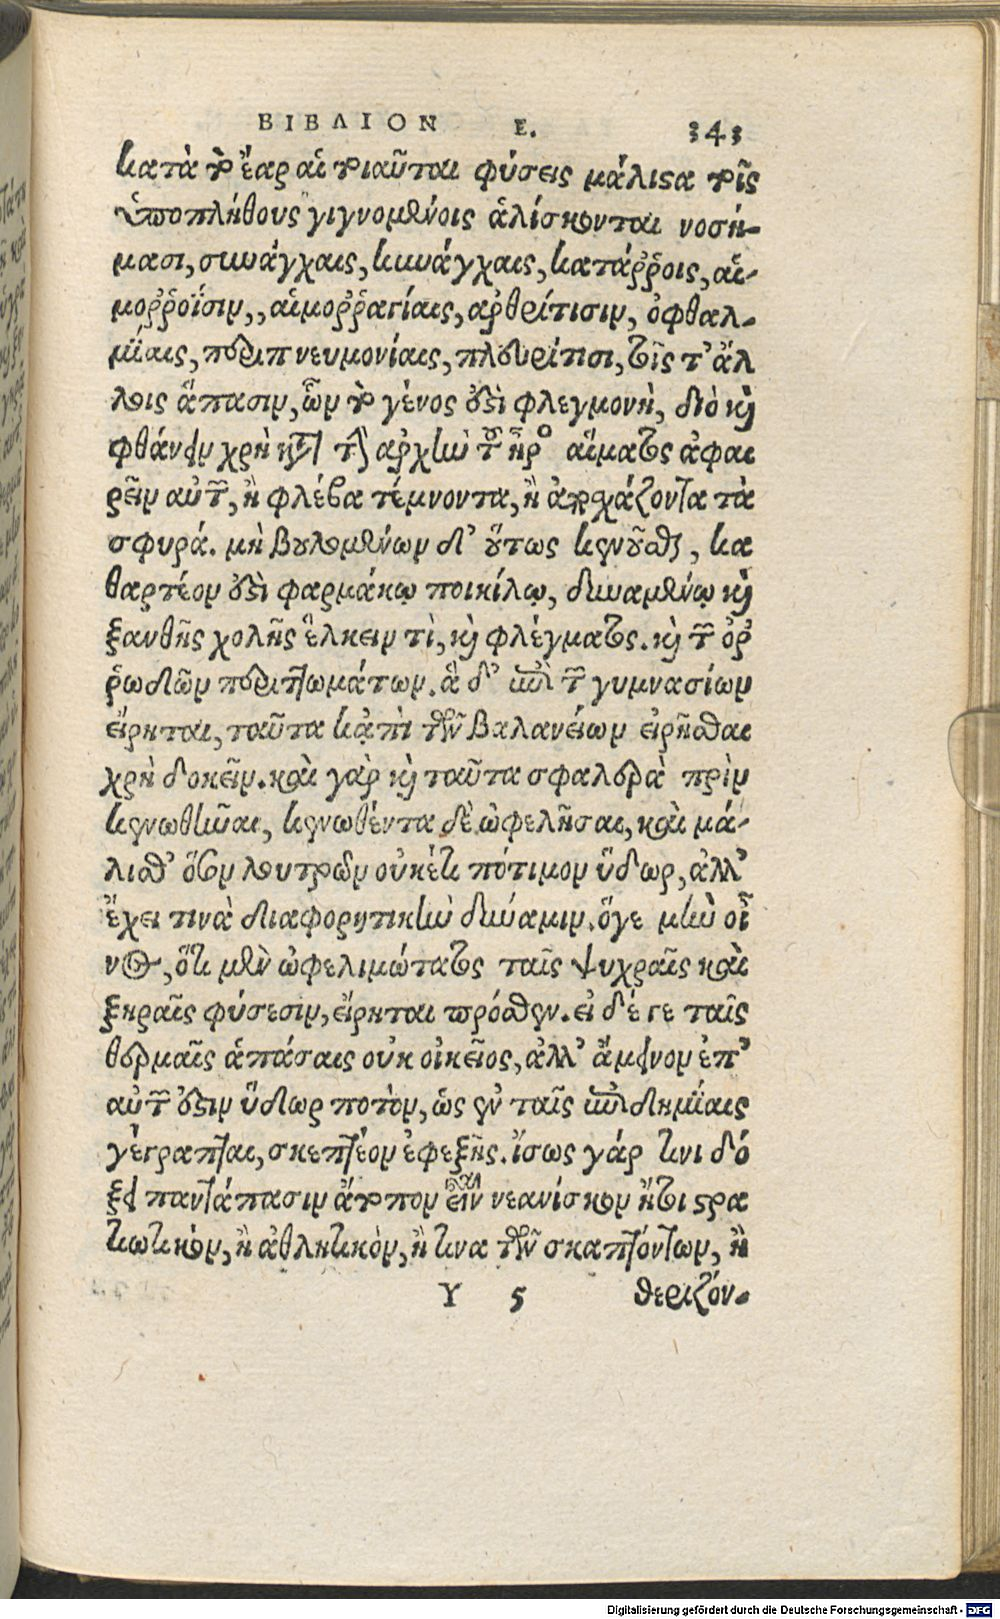 ΒΙΒΛΙΟΝ Ε. 343
κατὰ τὸ ἔαρ αἱ τοιαῦται φύσεις μάλιστα τοῖς
ὑποπλήθους γιγνομένοις ἁλίσκονται νοσή-
μασι, συνάγχαις, κυνάγχαις, κατάῤῥοις, αἱ-
μοῤῥοΐσιν,, αἱμοῤῥαγίαις, ἀρθρίτισιν, ὀφθαλ-
μίαις, περιπνευμονίαις, πλευρίτισι, τοῖς τ' ἄλ
λοις ἅπασιν, ὧν τὸ γένος ἐστὶ φλεγμονὴ, διὸ καὶ
φθάνειν χρὴ κατὰ τὴν ἀρχὴν τοῦ ἦρος αἵματος ἀφαι
ρεῖν αὐτῶν, ἢ φλέβα τέμνοντα, ἢ ἀποσχάζοντα τὰ
σφυρά. μὴ βουλομένων δ' οὕτως κενοῦσθαι, κα
θαρτέον ἐστὶ φαρμάκῳ ποικίλῳ, δυναμένῳ καὶ
ξανθῆς χολῆς ἕλκειν τὶ, καὶ φλέγματος. καὶ τῶν ὀῤ
ῥωδῶν περιττωμάτων. ἃ δ' ἐπὶ τῶν γυμνασίων
εἴρηται, ταῦτα κἀπὶ τῶν βαλανείων εἰρῆσθαι
χρὴ δοκεῖν. καὶ γὰρ καὶ ταῦτα σφαλερὰ πρὶν
κενωθῆναι, κενωθέντα δὲ ὠφελῆσαι, καὶ μά-
λισθ' ὅσον λουτρῶν οὐκέτι πότιμον ὕδωρ, ἀλλ'
ἔχει τινὰ διαφορητικὴν δύναμιν. ὅγε μὴν οἶ
νος, ὅτι μὲν ὠφελιμώτατος ταῖς ψυχραῖς καὶ
ξηραῖς φύσεσιν, εἴρηται πρόσθεν. εἰ δέ γε ταῖς
θερμαῖς ἁπάσαις οὐκ οἰκεῖος, ἀλλ' ἄμεινον ἐπ'
αὐτῶν ἐστιν ὕδωρ ποτὸν, ὡς ἐν ταῖς ἐπιδημίαις
γέγραπται, σκεπτέον ἐφεξῆς. ἴσως γάρ τινι δό
ξει παντάπασιν ἄτοπον εἶναι νεανίσκον ἤτοι στρα
τιωτικὸν, ἢ ἀθλητικὸν, ἢ τινα τῶν σκαπτόντων, ἢ
Υ 5 θεριζόν-
Digitalisierung gefördert durch die Deutsche Forschungsgemeinschaft - DFG